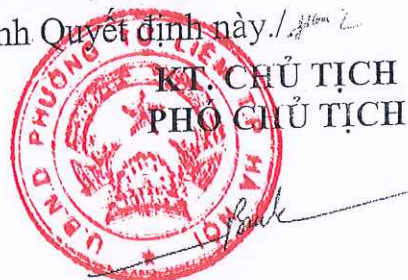 nh Quyết định này./.
KT. CHỦ TỊCH
PHÓ CHỦ TỊCH
U.B.N.D PHƯỜNG TỪ LIÊM T.P HÀ NỘI